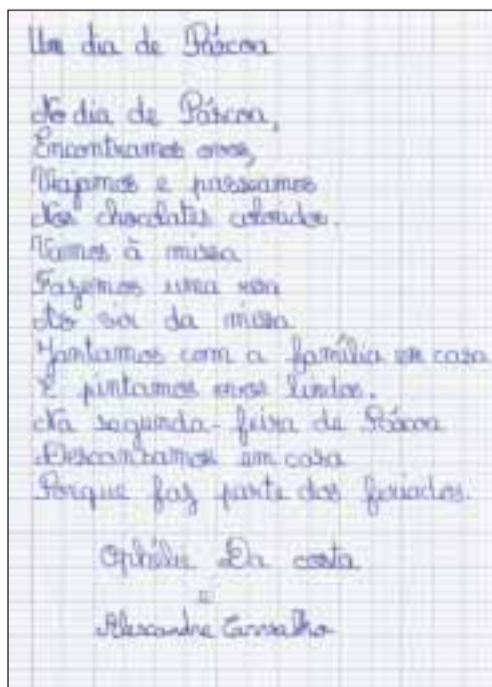 Um dia de Páscoa
No dia de Páscoa,
Encontramos ovos,
Viajamos e passeamos
Nos chocolates coloridos.
Vamos à missa
Fazemos uma
Ao sair da missa
Jantamos com a família em casa
E pintamos ovos lindos.
Na segunda-feira de Páscoa
Descansamos em casa
Porque faz parte dos feriados.
Ophélie Da costa
e
Alexandre Carvalho